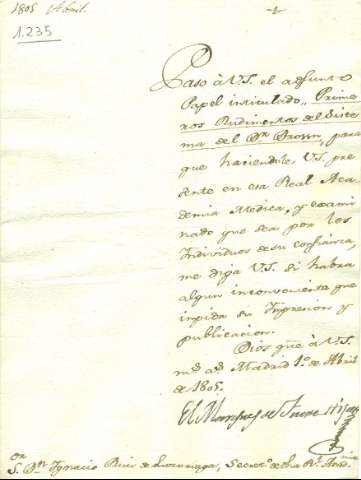 1805 Abril.
1.235
Paso à V.S. el adjunto
Papel intitulado, Prime
ros Rudimentos del Siste
ma del Dr. Brown, para
que haciendole V.S. pre
sente en esa Real Aca
demia Medica, y exami
nado que sea por los
Individuos de su confianza,
me diga V.S. si habra
algun inconveniente que
impida su Impresion y
publicacion.
Dios gue. à V.S.
ms. as. Madrid 1º. de Abril
de 1805.
El Marques de Fuerte Hijar
Sor. Dn. Ignacio Ruiz de Luzuriaga, Secreto. de la Rl.